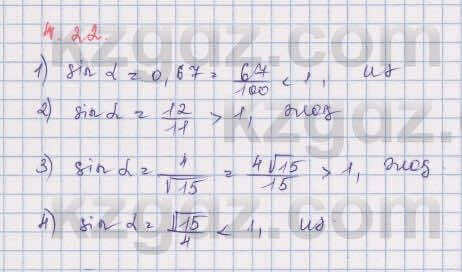 4.22.
1) sin α = 0,67 = 67/100 < 1, иә
2) sin α = 12/11 > 1, жоқ
3) sin α = 4/√15 = 4√15/15 > 1, жоқ.
4) sin α = √15/4 < 1, иә
kzgdz.com